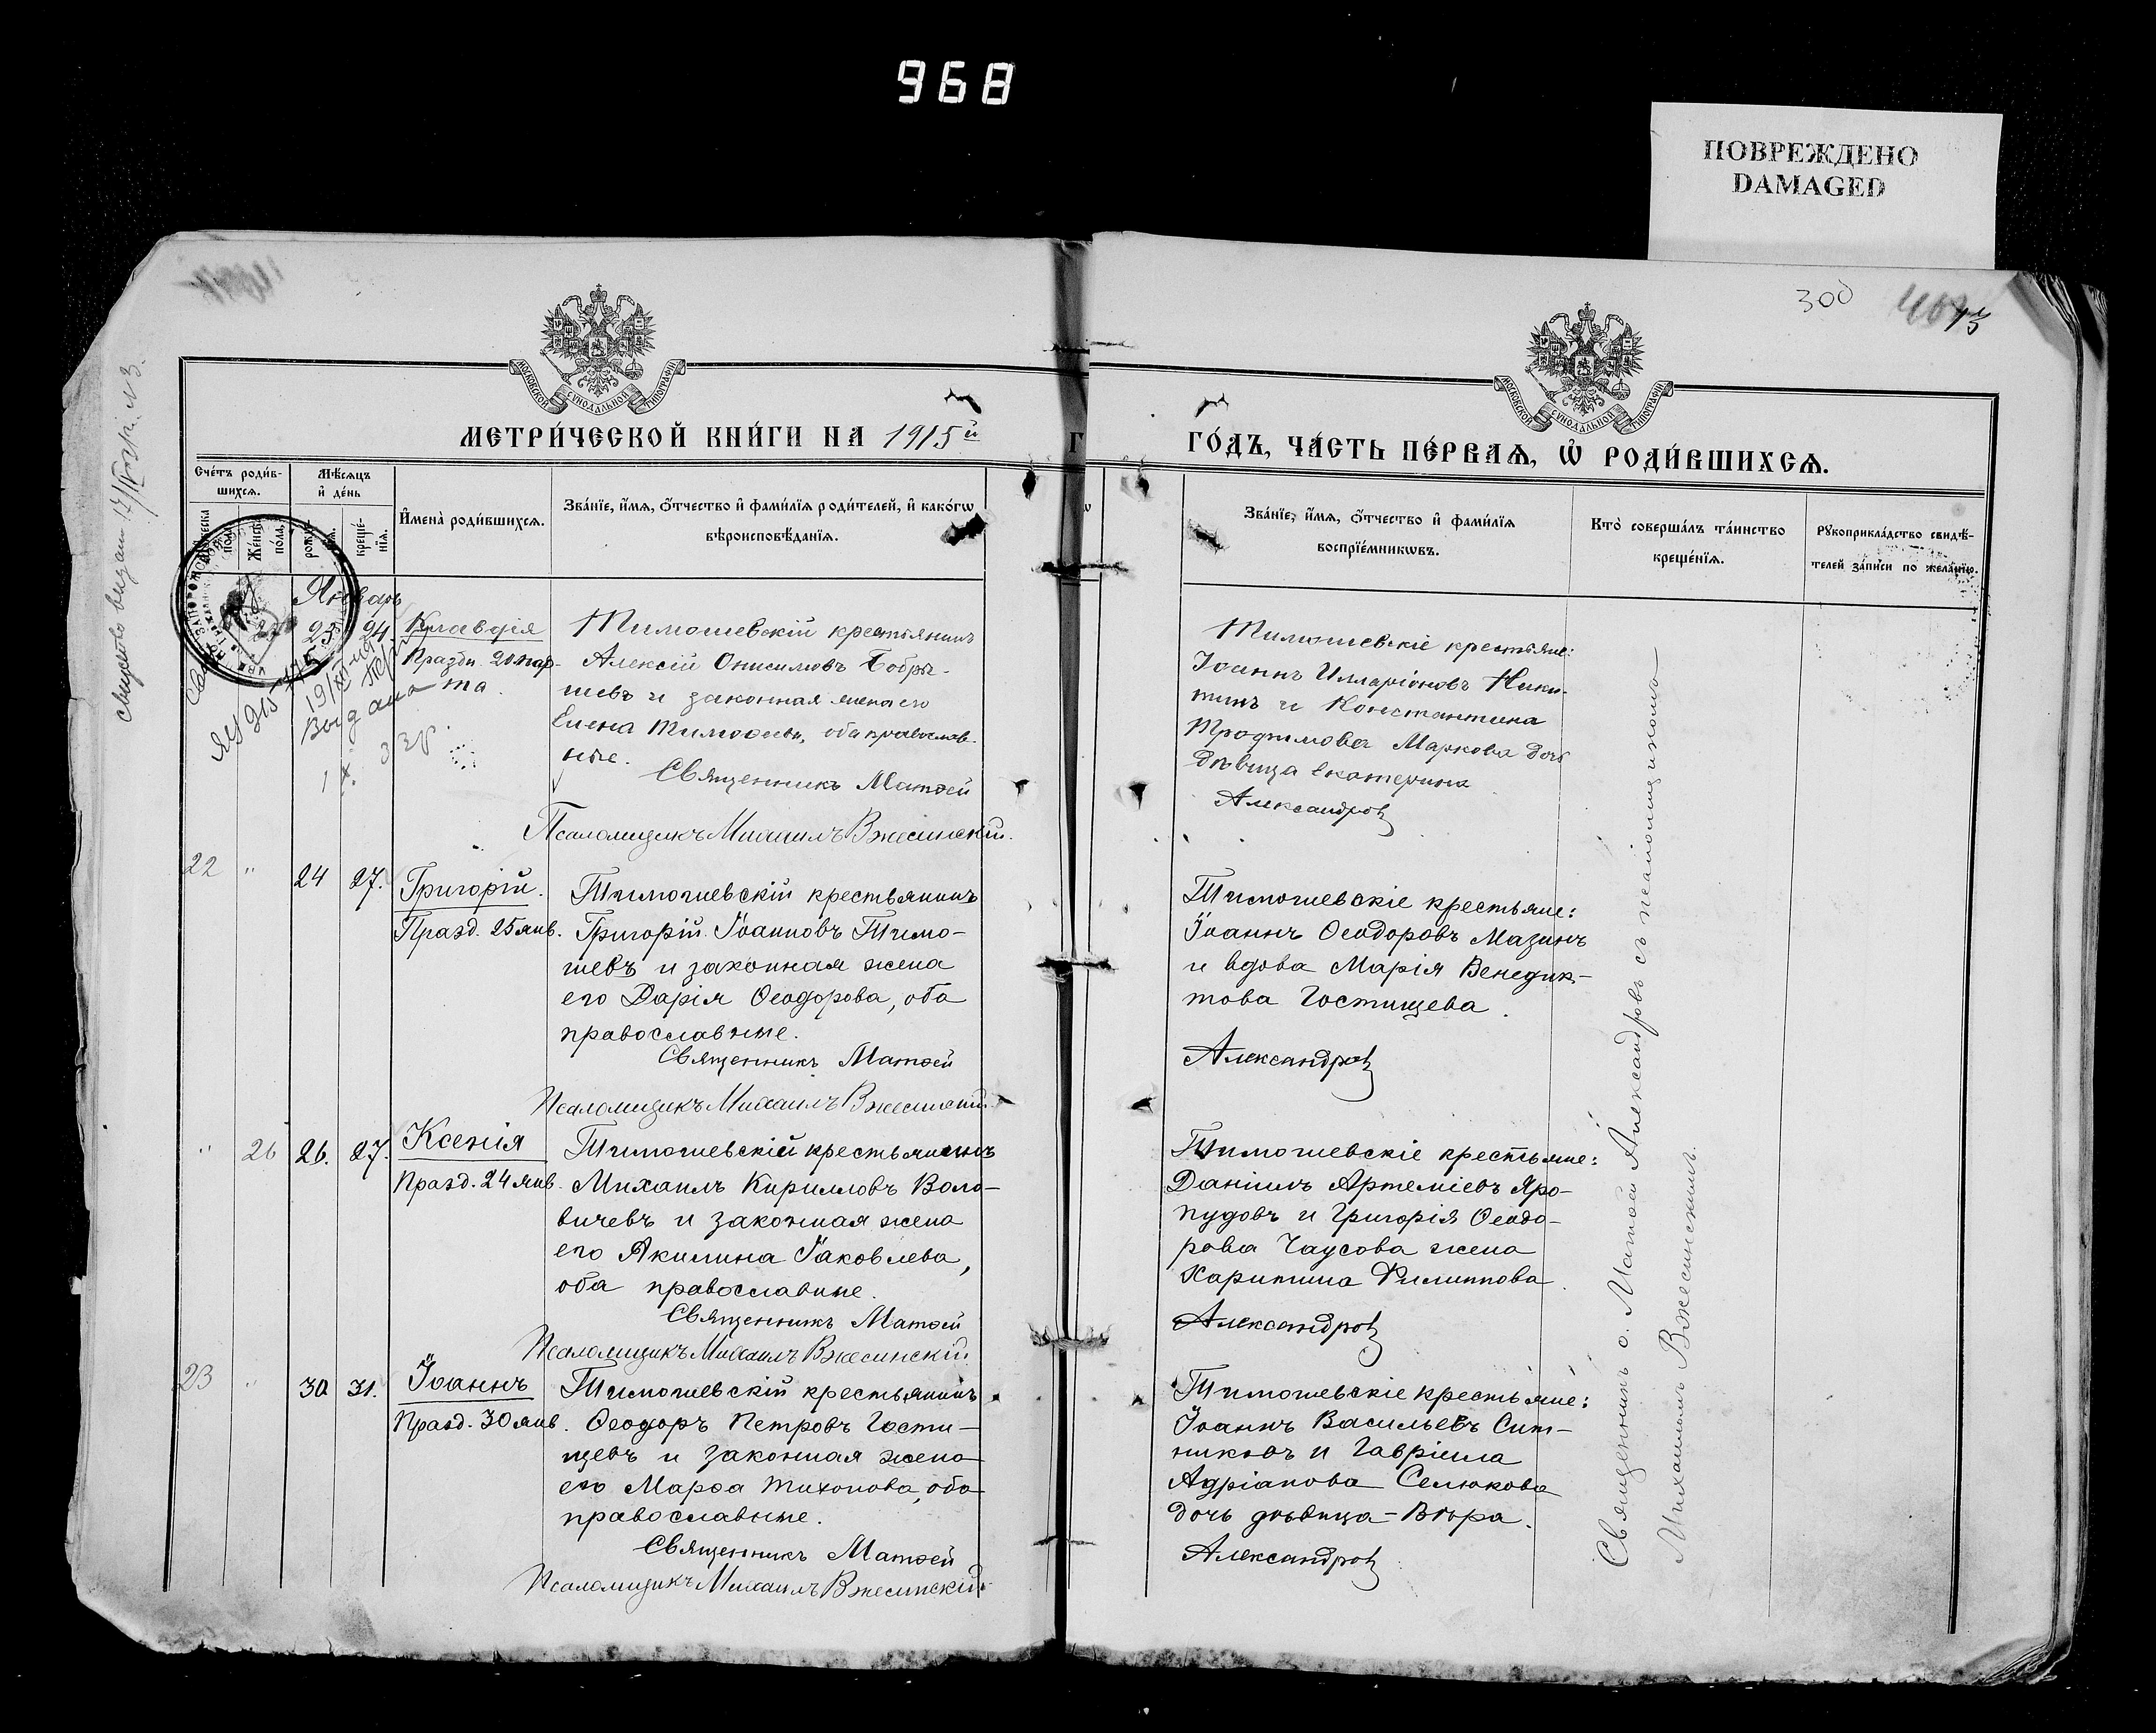 968
ПОВРЕЖДЕНО
DAMAGED
300
МОСКОВСКОЙ СѴНОДАЛЬНОЙ ТИПОГРАФІИ
МОСКОВСКОЙ СѴНОДАЛЬНОЙ ТИПОГРАФІИ
МЕТРИ́ЧЕСКОЙ КНИ́ГИ НА 1915й
ГО́ДЪ, ЧА́СТЬ ПЕ́РВАѦ, Ѡ҆ РОДИ́ВШИХСѦ.
Сче́тъ роди́в-
шихсѧ.
Мѣ́сѧцъ
и҆ де́нь
Же́нска
по́ла,
рожде́-
нїѧ.
креще́-
нїѧ.
И҆мена̀ роди́вшихсѧ.
Зва́нїе, и҆́мѧ, о҆́тчество и҆ фами́лїѧ роди́телей, и҆ како́гѡ
вѣроисповѣ́данїѧ.
Зва́нїе, и҆́мѧ, о҆́тчество и҆ фами́лїѧ
воспрїе́мникѡвъ.
Кто̀ соверша́лъ та́инство
креще́нїѧ.
Рꙋкоприкла́дство свидѣ́-
телей за́писи по жела́нїю.
Январь
23 24. Клавдія
Праздн. 20 мар-
та.
Тимошевскій крестьянинъ
Алексій Онисимовъ Бобры-
шевъ и законная жена его
Елена Тимоѳеева, оба православ-
ные.
Священникъ Матѳей
Псаломщикъ Михаилъ Вжесинскій.
Тимошевскіе крестьяне:
Іоаннъ Илларіоновъ Ники-
тинъ и Константина
Трофимова Маркова дочь
дѣвица Екатерина
Александровъ
22 " 24 27. Григорій.
Празд. 25 янв.
Тимошевскій крестьянинъ
Григорій Іоанновъ Тимо-
шевъ и законная жена
его Дарія Ѳеодорова, оба
православные.
Священникъ Матѳей
Псаломщикъ Михаилъ Вжесинскій.
Тимошевскіе крестьяне:
Іоаннъ Ѳеодоровъ Мазинъ
и вдова Марія Венедик-
това Гостищева.
Александровъ
" 26 26. 27. Ксенія
Празд. 24 янв.
Тимошевскій крестьянинъ
Михаилъ Кирилловъ Воло-
вичевъ и законная жена
его Акилина Іаковлева,
оба православные.
Священникъ Матѳей
Псаломщикъ Михаилъ Вжесинскій
Тимошевскіе крестьяне:
Даніилъ Артеміевъ Яро-
пудовъ и Григорія Ѳеодо-
рова Чаусова жена
Харитина Филиппова.
Александровъ
23 " 30 31. Іоаннъ
Празд. 30 янв.
Тимошевскій крестьянинъ
Ѳеодоръ Петровъ Гости-
щевъ и законная жена
его Марѳа Тихонова, оба
православные.
Священникъ Матѳей
Псаломщикъ Михаилъ Вжесинскій
Тимошевскіе крестьяне:
Іоаннъ Васильевъ Сит-
никовъ и Гавріила
Адріанова Селюкова
дочь дѣвица - Вѣра.
Александровъ
Священникъ о. Матѳей Александровъ съ псаломщикомъ
Михаиломъ Вжесинскимъ.